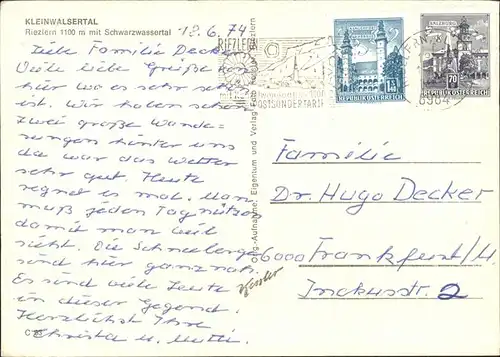 KLEINWALSERTAL
Riezlern 1100 m mit Schwarzwassertal
18.6.74
Liebe Familie Decker
Viele liebe Grüße von
hier wo es sehr schön
ist. Wir haben schon
zwei große Wande-
rungen hinter uns
da war das Wetter
sehr gut. Heute
regnet es mal. Man
muß jeden Tag nützen
damit man weit
sieht. Die Schneeberge
sind hier ganz nah.
Es sind viele Leute
in dieser Gegend.
Herzlichst Ihre
Christa u. Mutti.
Orig.-Aufnahme, Eigentum und Verlag
Riezlern
RIEZLERN
POSTSONDERTARIF
REPUBLIK ÖSTERREICH
SALZBURG
70
REPUBLIK ÖSTERREICH
Familie
Dr. Hugo Decker
6000 Frankfurt/M
2